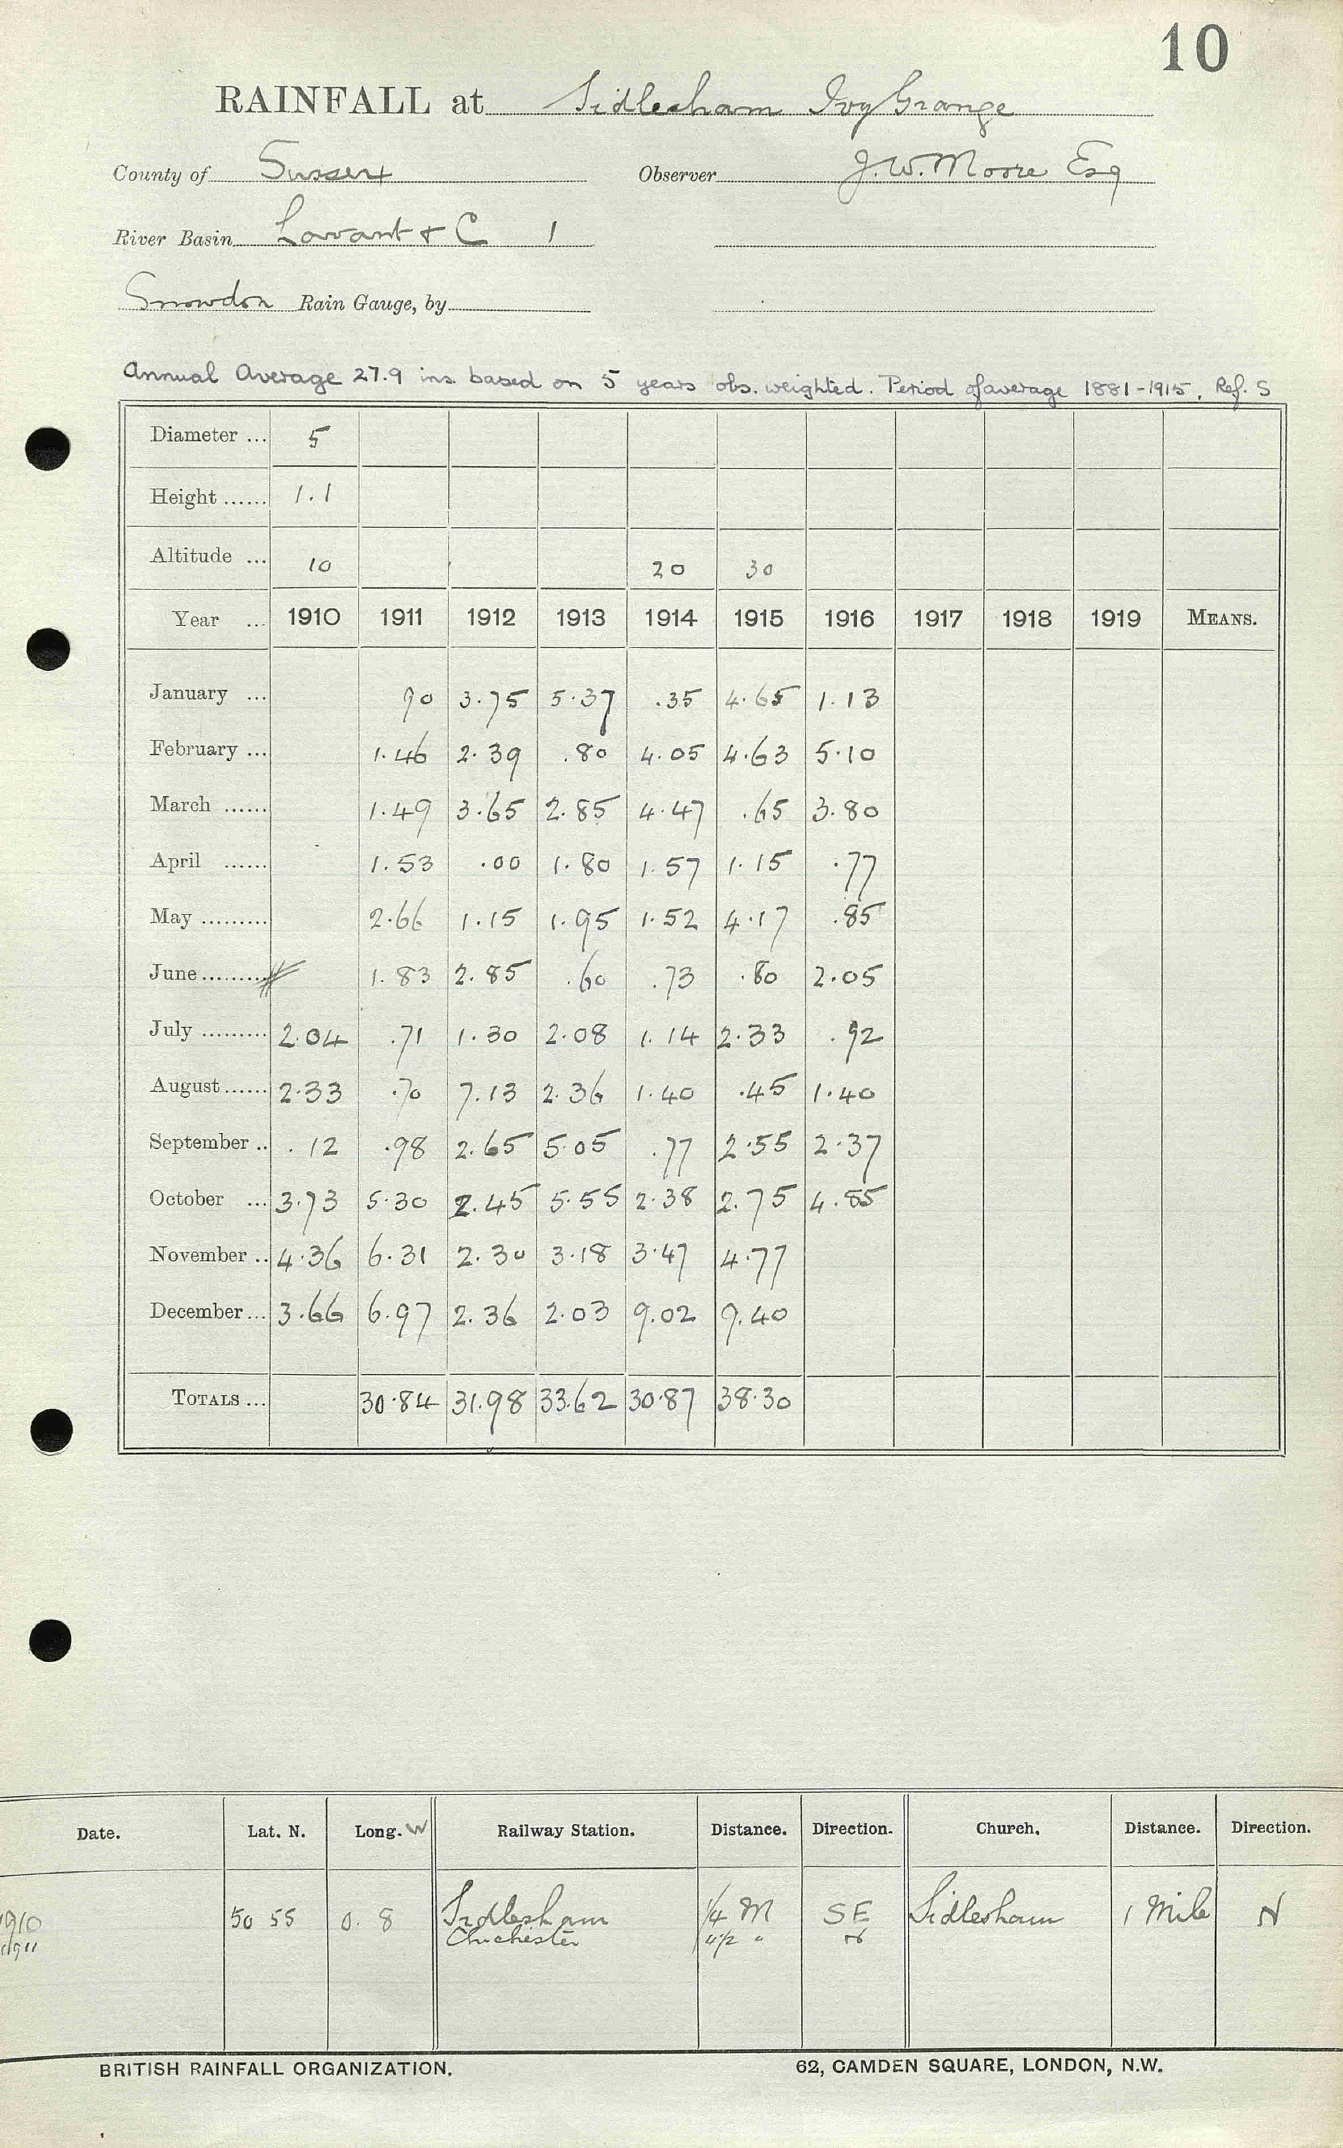 10
RAINFALL at Sidlesham Ivy Grange
County of Sussex Observer J. W. Moore Esq
River Basin Lavant & C 1
Snowdon Rain Gauge, by
Annual Average 27.9 ins. based on 5 years obs. weighted. Period of average 1881-1915. Ref. S
Diameter ... 5
Height ...... 1.1
Altitude ... 10 20 30
Year ... 1910 1911 1912 1913 1914 1915 1916 1917 1918 1919 MEANS.
January ... 90 3.75 5.37 .35 4.65 1.13
February ... 1.46 2.39 .80 4.05 4.63 5.10
March ...... 1.49 3.65 2.85 4.47 .65 3.80
April ...... 1.53 .00 1.80 1.57 1.15 .77
May ......... 2.66 1.15 1.95 1.52 4.17 .85
June ......... 1.83 2.85 .60 .73 .80 2.05
July ......... 2.04 .71 1.30 2.08 1.14 2.33 .92
August ...... 2.33 .70 7.13 2.36 1.40 .45 1.40
September .. .12 .98 2.65 5.05 .77 2.55 2.37
October ... 3.73 5.30 2.45 5.55 2.38 2.75 4.85
November .. 4.36 6.31 2.30 3.18 3.47 4.77
December ... 3.66 6.97 2.36 2.03 9.02 9.40
TOTALS ... 30.84 31.98 33.62 30.87 38.30
Date. Lat. N. Long. W Railway Station. Distance. Direction. Church. Distance. Direction.
1910 50 55 0. 8 Sidlesham 1/4 M SE Sidlesham 1 Mile N
1911 Chichester 4 1/2 " N
BRITISH RAINFALL ORGANIZATION. 62, CAMDEN SQUARE, LONDON, N.W.